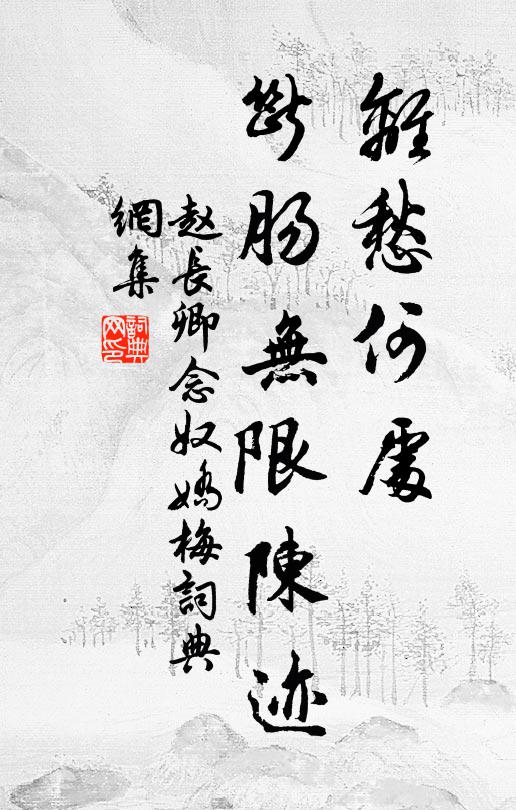 離愁何處
斷腸無限陳迹
赵長卿念奴嬌梅詞典
網集
詞典网印